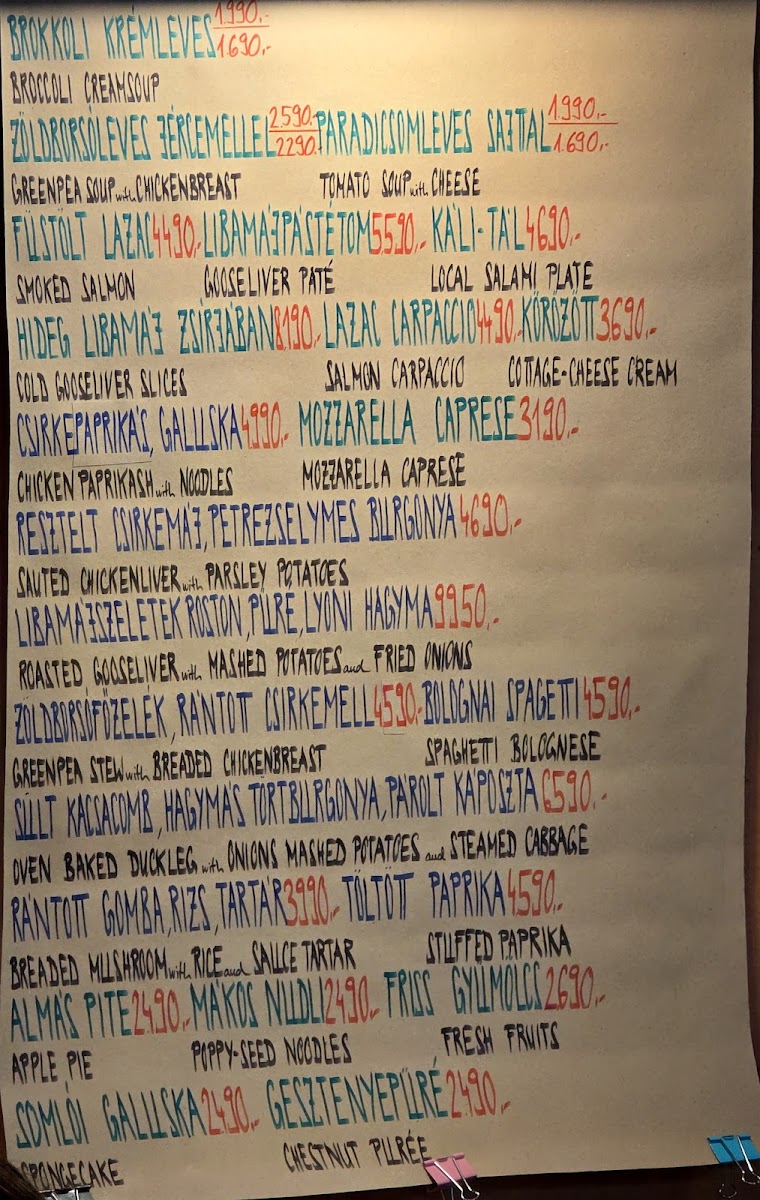 BROKKOLI KRÉMLEVES 1.990.-
1.690.-
BROCCOLI CREAMSOUP
ZÖLDBORSÓLEVES JÉRCEMELLEL 2.590.- PARADICSOMLEVES SAJTAL 1.990.-
2290.- 1.690.-
GREENPEA SOUP with CHICKENBREAST TOMATO SOUP with CHEESE
FÜSTÖLT LAZAC 4490.- LIBAMÁJPÁSTÉTOM 5.590.- KÁLI-TÁL 4.690.-
SMOKED SALMON GOOSELIVER PATÉ LOCAL SALAMI PLATE
HIDEG LIBAMÁJ ZSÍRJÁBAN 8.190.- LAZAC CARPACCIO 4.490.- KŐRÖZÖTT 3.690.-
COLD GOOSELIVER SLICES SALMON CARPACCIO COTTAGE-CHEESE CREAM
CSIRKEPAPRIKÁS, GALUSKA 4.990.- MOZZARELLA CAPRESE 3190.-
CHICKEN PAPRIKASH with NOODLES MOZZARELLA CAPRESE
RESZTELT CSIRKEMÁJ, PETREZSELYMES BURGONYA 4690.-
SAUTED CHICKENLIVER with PARSLEY POTATOES
LIBAMÁJSZELETEK ROSTON, PÜRE, LYONI HAGYMA 9950.-
ROASTED GOOSELIVER with MASHED POTATOES and FRIED ONIONS
ZÖLDBORSÓFŐZELÉK, RÁNTOTT CSIRKEMELL 4590.- BOLOGNAI SPAGETTI 4590.-
GREENPEA STEW with BREADED CHICKENBREAST SPAGHETTI BOLOGNESE
SÜLT KACSACOMB, HAGYMÁS TÖRTBURGONYA, PÁROLT KÁPOSZTA 6590.-
OVEN BAKED DUCKLEG with ONIONS MASHED POTATOES and STEAMED CABBAGE
RÁNTOTT GOMBA, RIZS, TARTÁR 3990.- TÖLTÖTT PAPRIKA 4.590.-
BREADED MUSHROOM with RICE and SAUCE TARTAR STUFFED PAPRIKA
ALMÁS PITE 2490.- MÁKOS NUDLI 2490.- FRISS GYÜMÖLCS 2690.-
APPLE PIE POPPY-SEED NOODLES FRESH FRUITS
SOMLÓI GALUSKA 2490.- GESZTENYEPÜRÉ 2490.-
SPONGECAKE CHESTNUT PURÉE